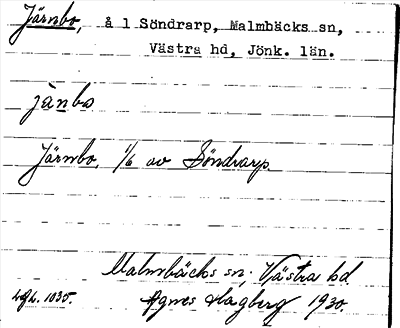 Järnbo, å 1 Söndrarp, Malmbäcks sn,
Västra hd, Jönk. län.
jànbo
Järnbo, 1/6 av Söndrarp.
Malmbäcks sn, Västra hd.
Agnes Hagberg 1930.
1035.